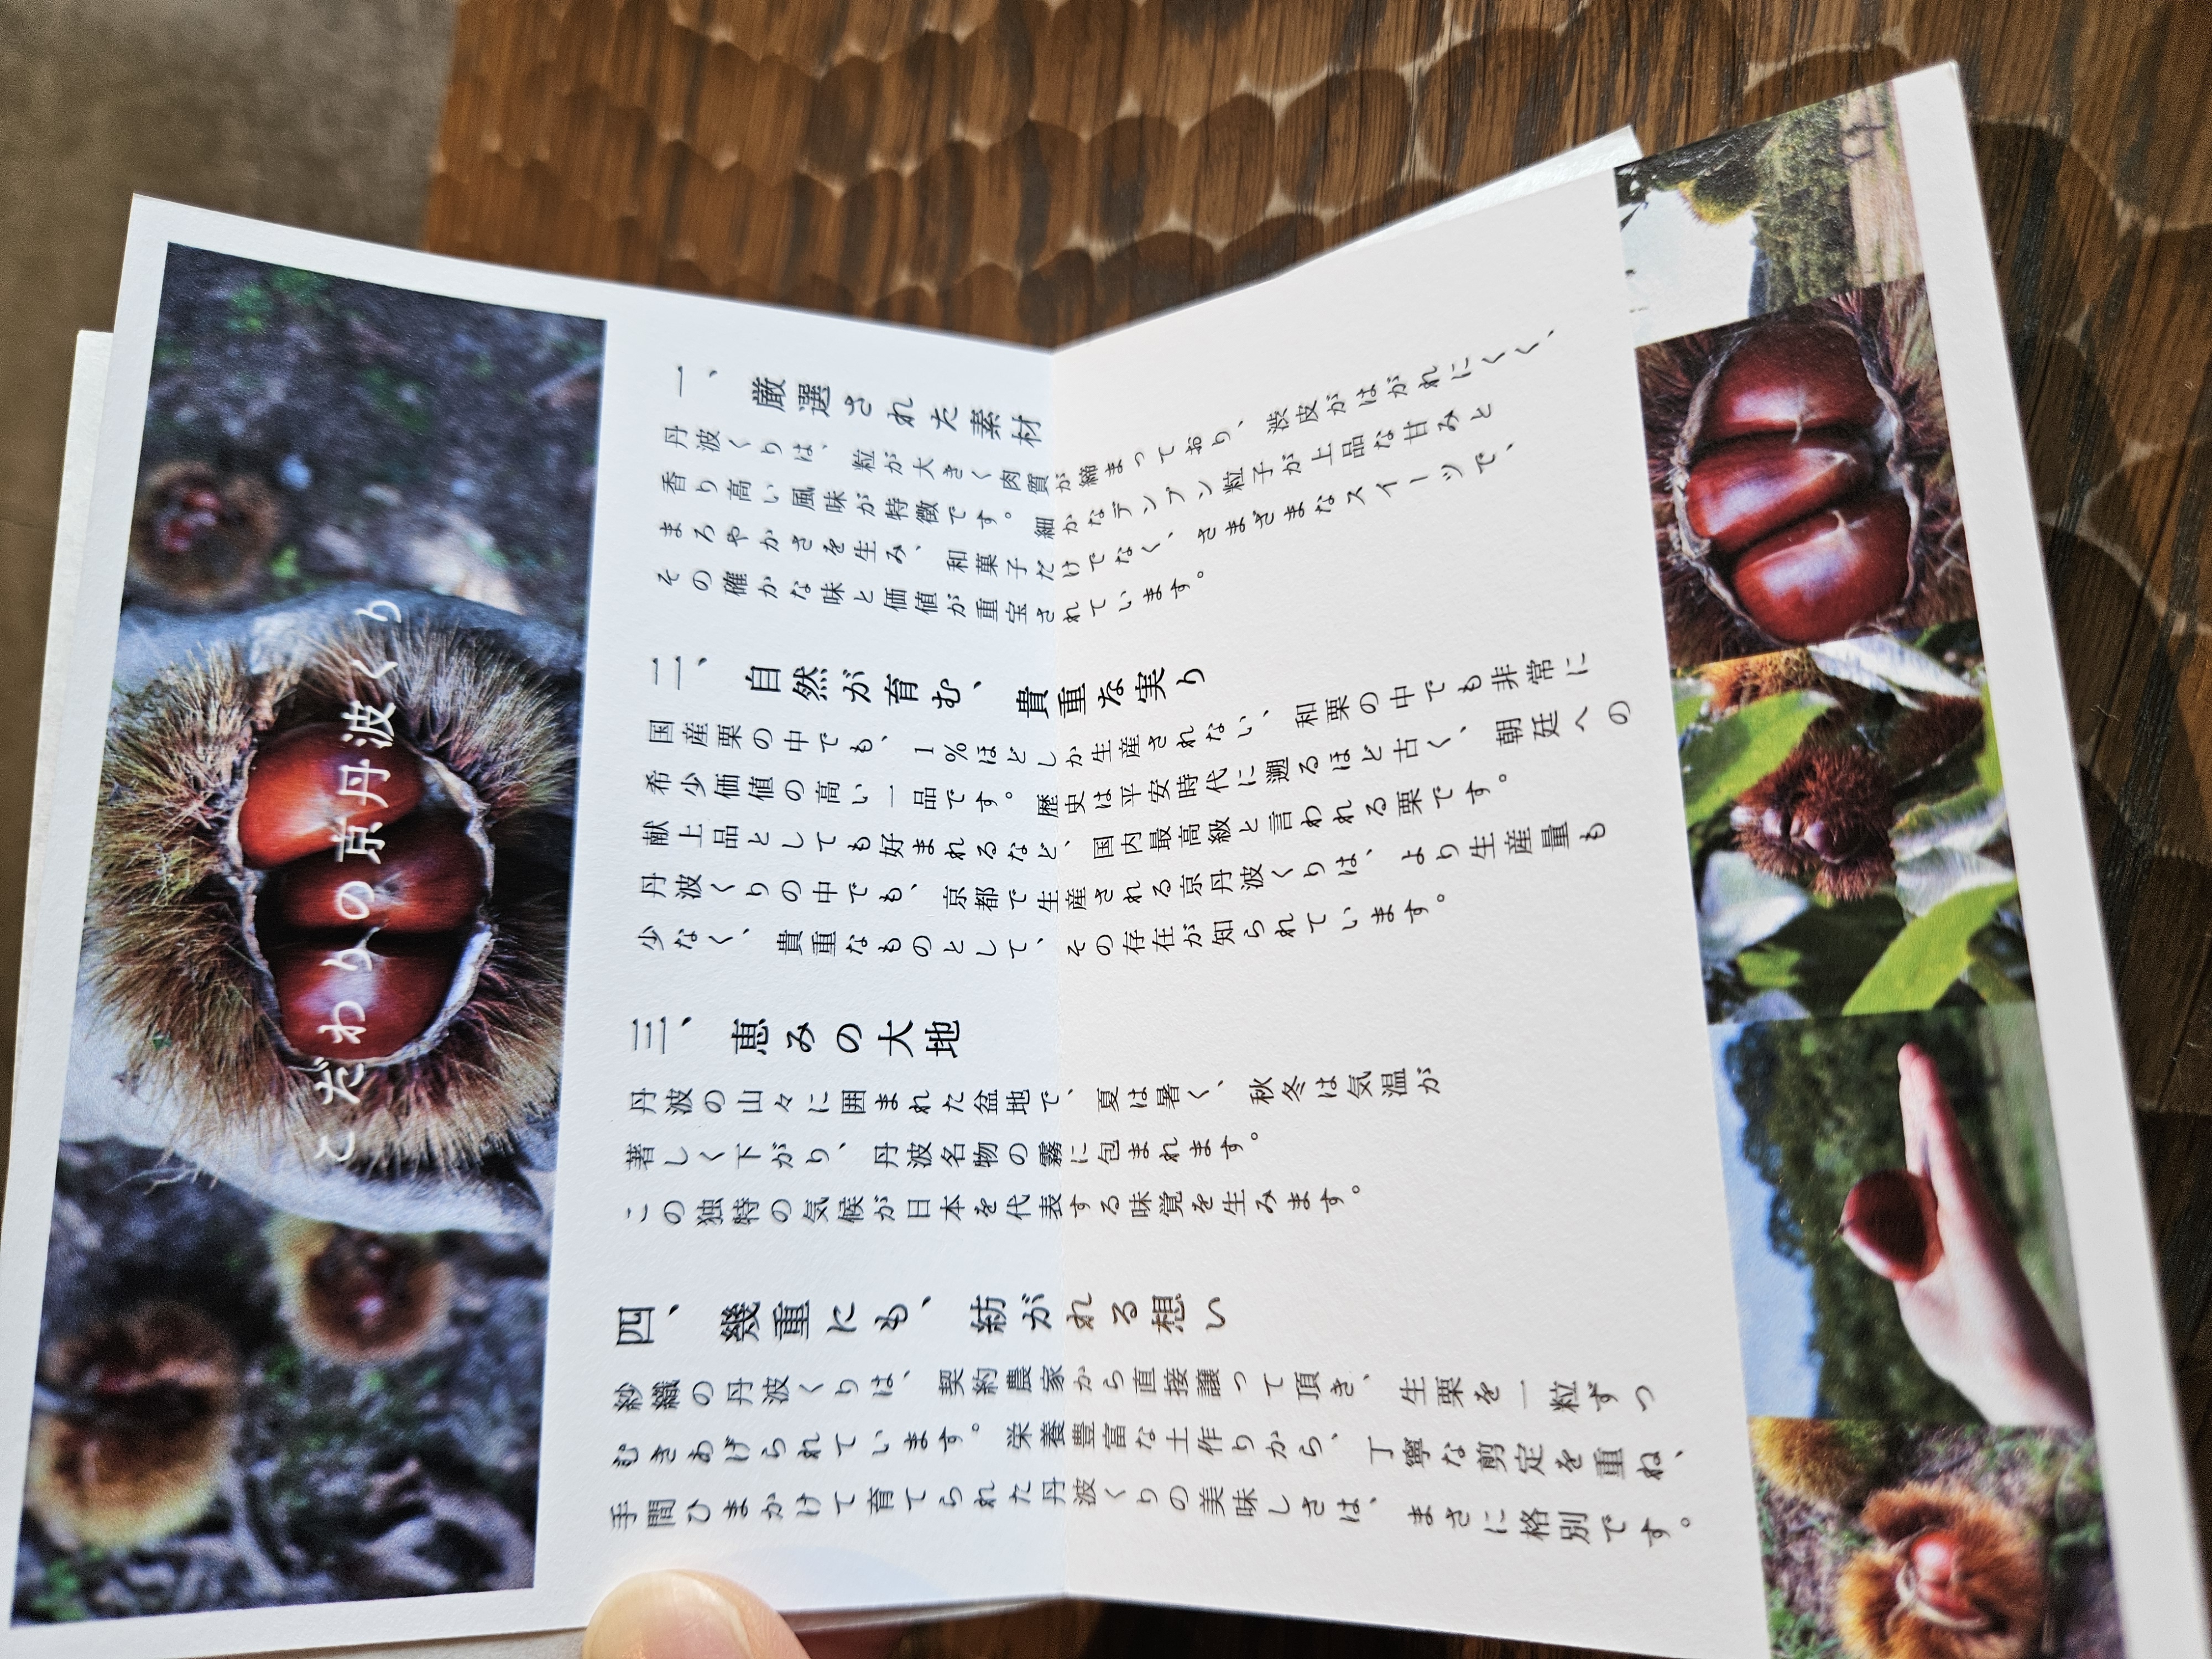 こだわりの京丹波くり
一、厳選された素材
丹波くりは、粒が大きく肉質が締まっており、渋皮がはがれにくく、
香り高い風味が特徴です。細かなデンプン粒子が上品な甘みと
まろやかさを生み、和菓子だけでなく、さまざまなスイーツで、
その確かな味と価値が重宝されています。
二、自然が育む、貴重な実り
国産栗の中でも、1%ほどしか生産されない、和栗の中でも非常に
希少価値の高い一品です。歴史は平安時代に遡るほど古く、朝廷への
献上品としても好まれるなど、国内最高級と言われる栗です。
丹波くりの中でも、京都で生産される京丹波くりは、より生産量も
少なく、貴重なものとして、その存在が知られています。
三、恵みの大地
丹波の山々に囲まれた盆地で、夏は暑く、秋冬は気温が
著しく下がり、丹波名物の霧に包まれます。
この独特の気候が日本を代表する味覚を生みます。
四、幾重にも、紡がれる想い
紗織の丹波くりは、契約農家から直接譲って頂き、生栗を一粒ずつ
むきあげられています。栄養豊富な土作りから、丁寧な剪定を重ね、
手間ひまかけて育てられた丹波くりの美味しさは、まさに格別です。